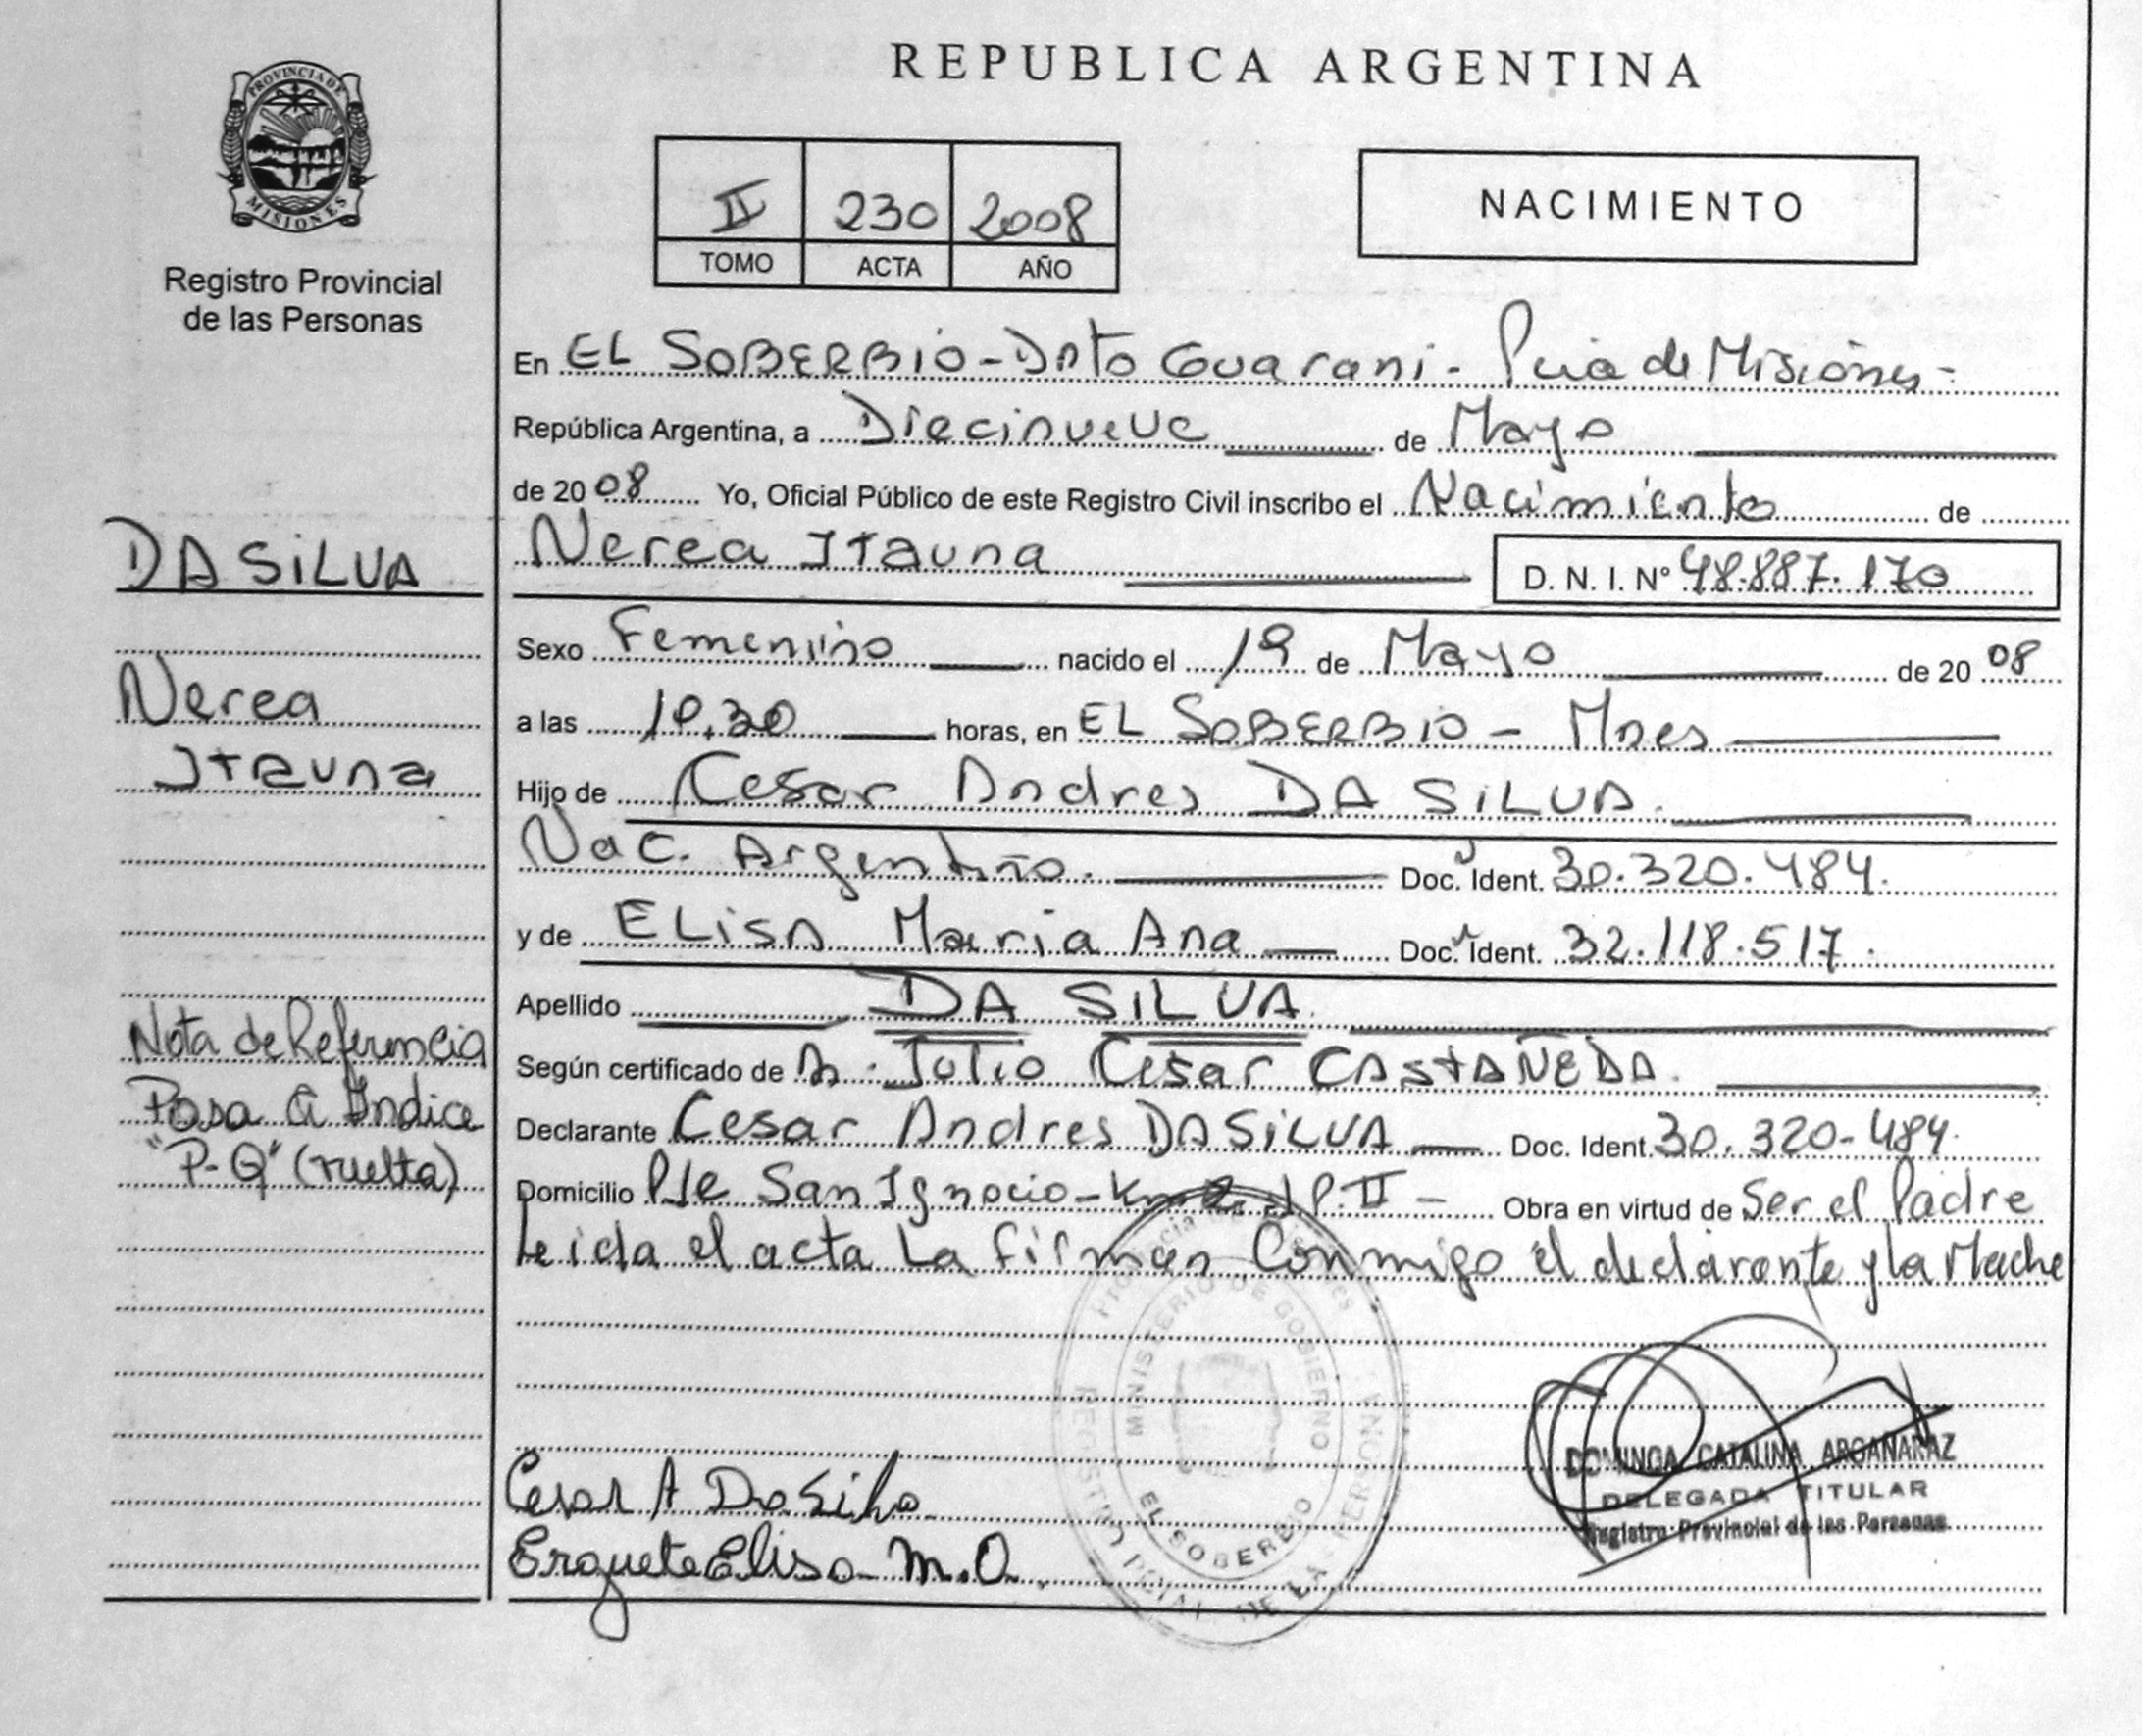 REPUBLICA ARGENTINA
PROVINCIA DE
MISIONES
Registro Provincial
de las Personas
II 230 2008
TOMO ACTA AÑO
NACIMIENTO
En EL SOBERBIO - Dpto Guarani - Pcia de Misiones -
República Argentina, a Diecinueve de Mayo
de 2008 Yo, Oficial Público de este Registro Civil inscribo el Nacimiento de
Nerea Itauna D. N. I. Nº 48.887.170
Sexo Femenino nacido el 19 de Mayo de 2008
a las horas, en EL SOBERBIO - Mnes
Hijo de Cesar Andres DA SILVA.
Nac. Argentino. Doc. Ident. 30.320.484.
y de ELisa Maria Ana Doc. Ident. 32.118.517.
Apellido DA SILVA.
Según certificado de Julio Cesar CASTAÑEDA.
Declarante Cesar Andres DA SILVA Doc. Ident. 30.320-484.
Domicilio San Ignacio - Obra en virtud de Ser el Padre
Leida el acta La firman Conmigo el declarante y la Madre
DA SILVA
Nerea
Itauna
Nota de Referencia
Pasa a Indice
"P-Q" (vuelta)
MINISTERIO DE GOBIERNO
EL SOBERBIO
Cesar A Da Silva
Elisa M. A.
DOMINGA CATALINA ARGAÑARAZ
DELEGADA TITULAR
Registro Provincial de las Personas